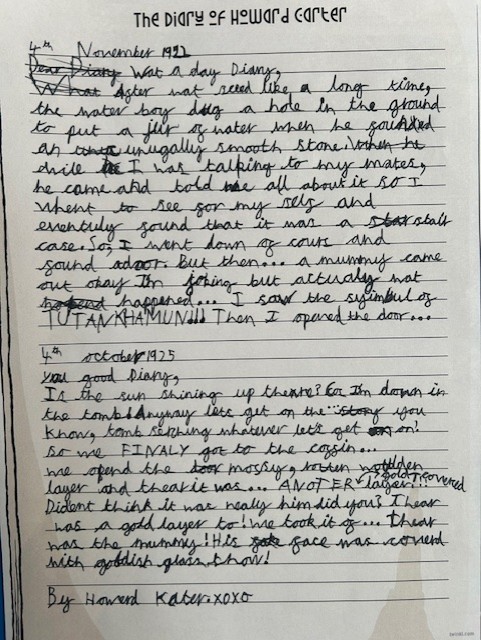 The Diary of Howard Carter
4th November 1922
Dear Diary Wat a day Diary,
What After wat seed like a long time,
the water boy dug a hole in the ground
to put a jar of water when he founded
an unugally smooth stone. When he
while I was talking to my mates,
he came and told me all about it so I
whent to see for my self and
eventuly found that it was a star stair
case. So, I went down of cours and
found a door. But then... a mummy came
out okay Im joking but actualy wat
happend happened... I saw the syimbul of
TUTANKHAMUN!!! Then I opened the door...
4th october 1925
you good Diary,
Is the sun shining up theare? Im down in
the tomb! Anyway lets get on the story you
know, tomb serching whatever let's get on!
So we FINALY got to the coffin...
we opend the door mossy, rotten wodden
layer and thear it was... ANOTER gold covered layer...
Didont think it was really him did you? Thear
was a gold layer to! We took it of... Thear
was the mummy! His face was coverd
with goldish glass, thow!
By Howerd Kater. xoxo
twinkl.com